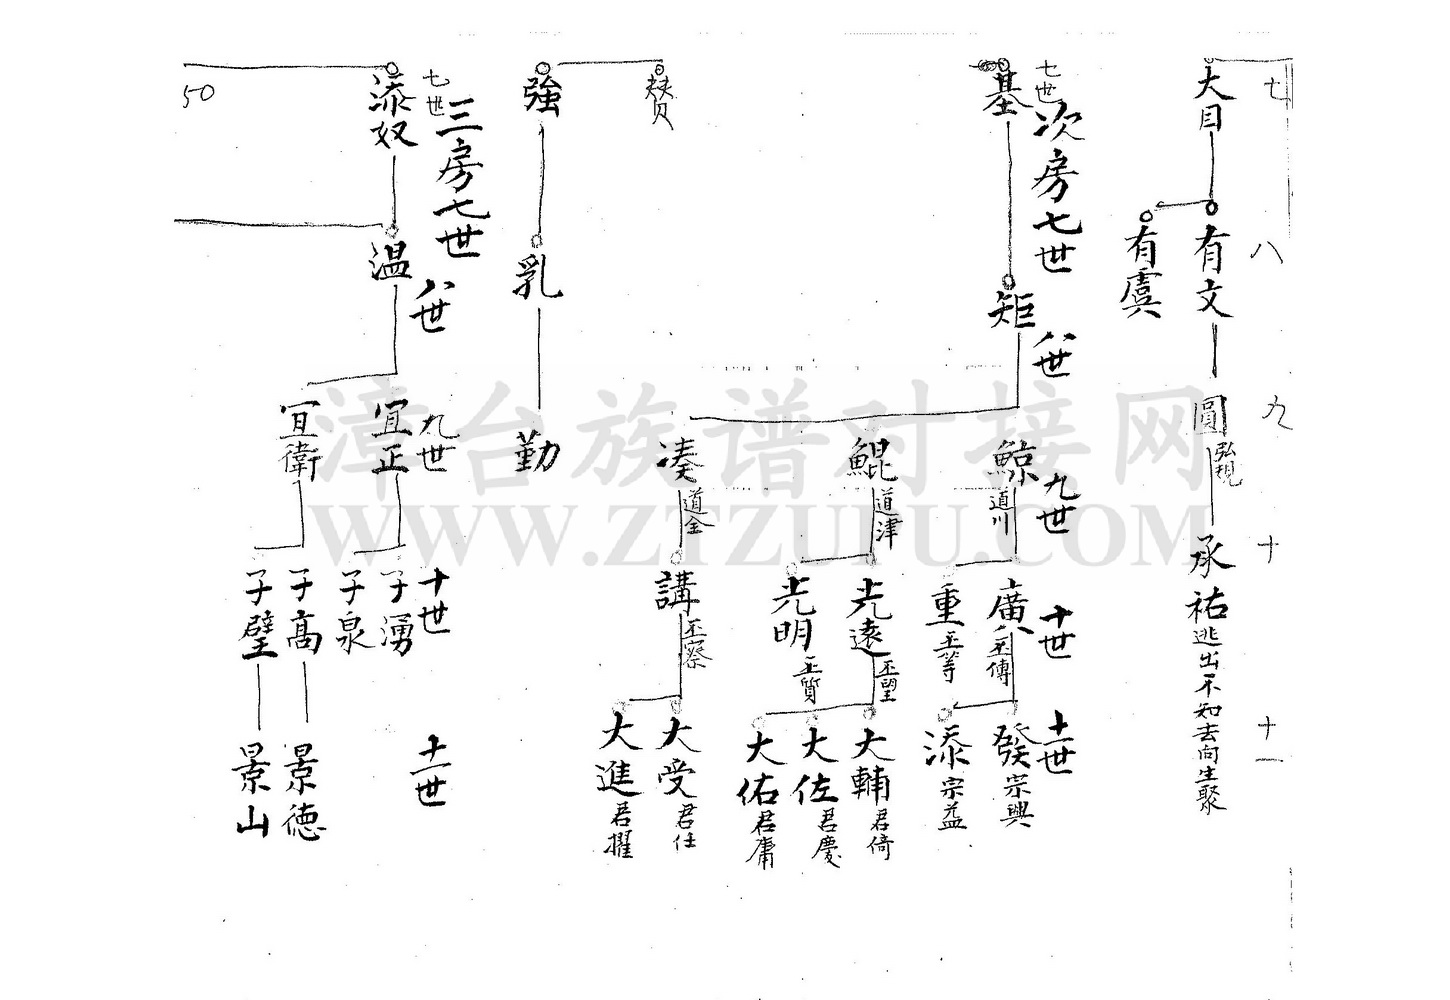 七
八
九
十
十一
大目
有文
有虞
圓
弘規
承祐
逃出不知去向生聚
七世
基
次房七世
矩
八世
九世
鯨
道川
鯤
道津
湊
道金
十世
廣
重
光遠
丕望
光明
丕質
講
丕察
十一世
發
宗興
添
宗益
大輔
君倚
大佐
君慶
大佑
君庸
大受
君任
大進
君擢
贊
強
乳
勤
七世
三房七世
添奴
50
溫
八世
九世
宜正
宜衛
十世
子湧
子泉
子高
子璧
十一世
景德
景山
漳台族谱对接网
WWW.ZTZUPU.COM